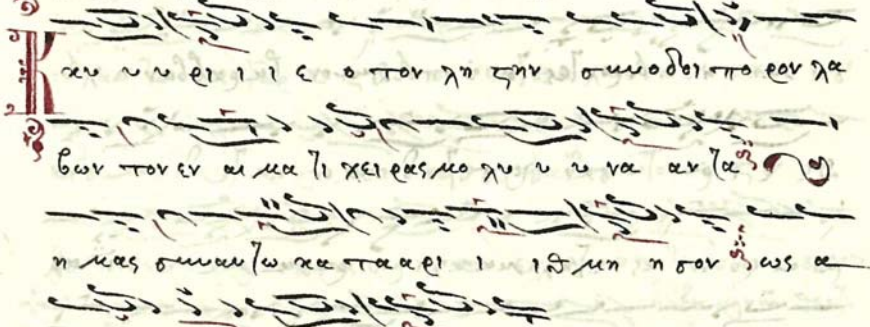 Κυ υ υ ρι ι ι ε ο τον λη ςην συνοδοι πο ρον λα
βων τον εν αι μα τι χει ρας μο λυ υ υ να αν τα
η μας συναυτω κα τα α ρι ι ιθ μη η σον ως α